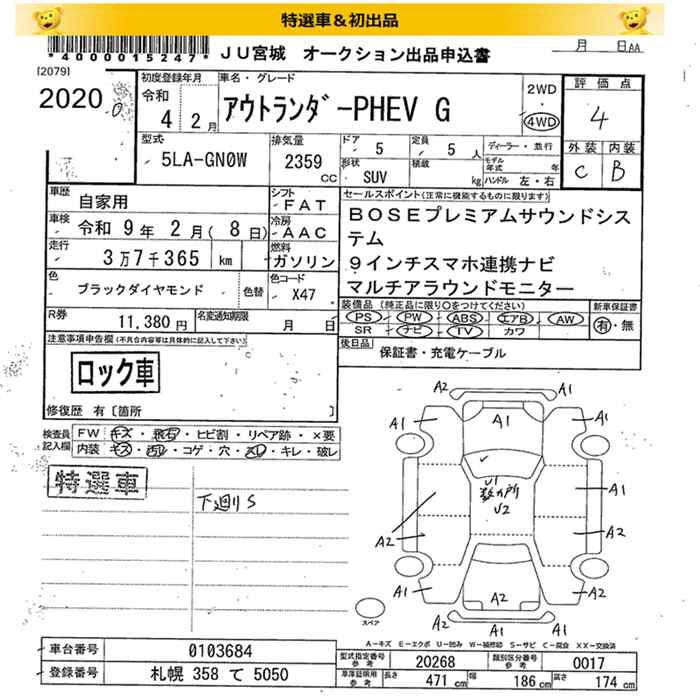 特選車&初出品
*4000015247*
JU宮城 オークション出品申込書
月 日AA
[2079]
2020
初度登録年月
令和
4 2月
車名・グレード
アウトランダーPHEV G
2WD
4WD
評価点
4
外装 内装
C B
型式
5LA-GN0W
排気量
2359
cc
ドア
5
定員
5 人
ディーラー・並行
形状
SUV
積載
kg
モデル年式 年
ハンドル 左・右
車歴
自家用
シフト
FAT
車検
令和 9年 2月( 8日)
冷房
AAC
走行
3万7千365 km
燃料
ガソリン
色
ブラックダイヤモンド
色替
色コード
X47
セールスポイント(正常に機能するものに限ります)
BOSEプレミアムサウンドシス
テム
9インチスマホ連携ナビ
マルチアラウンドモニター
R券
11,380円
名変通知期限
月 日
装備品(純正品に限り○をつけてください)
PS PW ABS エアB AW
SR ナビ TV カワ
新車保証書
有・無
注意事項申告欄(不具合内容等は具体的に記入して下さい)
ロック車
後日品
保証書・充電ケーブル
修復歴 有[箇所 ]
検査員
記入欄
FW キズ・飛石・ヒビ割・リペア跡・×要
内装 キズ・汚れ・コゲ・穴・スレ・キレ・破レ
特選車
下廻りS
A2 A1
A1 A1 A1
U1
数ヵ所
U2
A1
A2 A2
A1 A2 A2
A2 A1
スペア
A-キズ E-エクボ U-凹み W-補修跡 S-サビ C-腐食 XX-交換済
車台番号
0103684
型式指定番号
参考
20268
類別区分番号
参考
0017
登録番号
札幌 358 て 5050
車庫証明用
参考
長さ
471 cm
幅
186 cm
高さ
174 cm